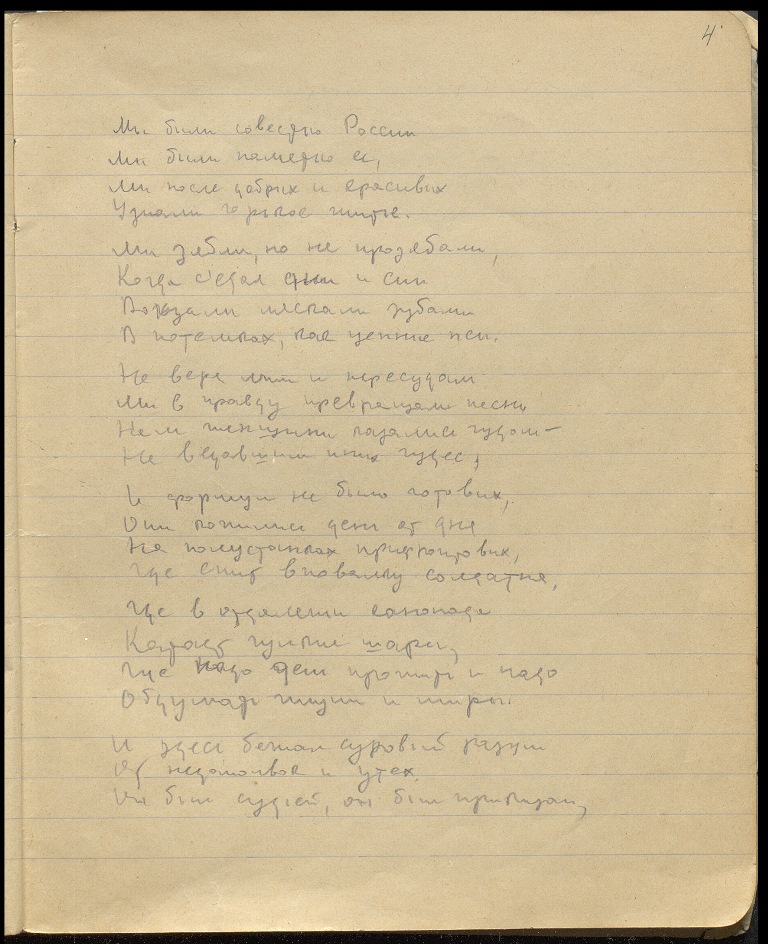 4
Мы были совестью России
Мы были памятью ее,
Мы после добрых и красивых
Узнали горькое житье.
Мы зябли, но не прозябали,
Когда съедал дни и сны
Вокзалы лязгали зубами
В потемках, как цепные псы.
Не веря лжи и пересудам
Мы в правду превращали песнь
Нам женщины казались чудом —
Не ведавшим иных чудес,
И формул не было готовых,
Они копились день от дня
На полустанках прифронтовых,
Где спит вповалку солдатня,
Где в отдалении канонада
Катает гулкие шары,
Где надо день прожить и надо
Обдумать жизни и миры.
И здесь бежал суровый разум
От недомолвок и утех.
Он был судьей, он был приказом,